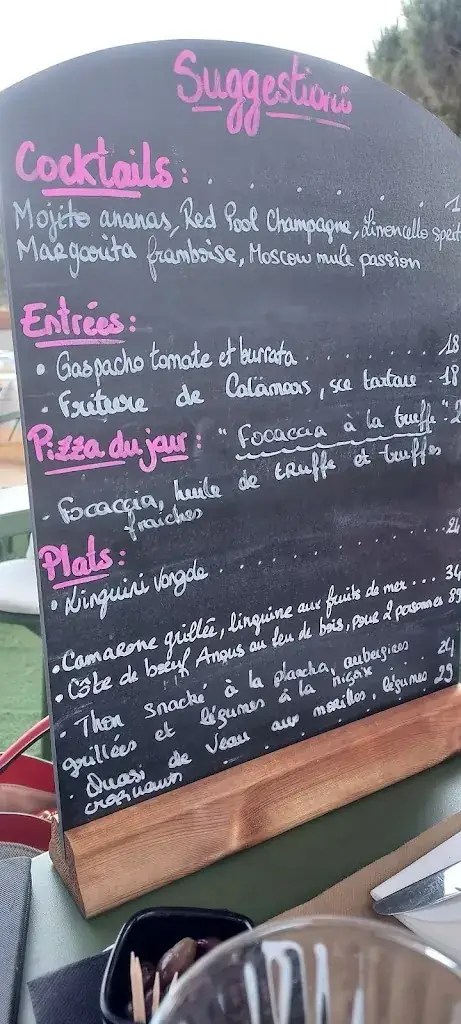 Suggestions
Cocktails : . . . . . . 1
Mojito ananas, Red Pool Champagne, Limoncello sprit
Margarita framboise, Moscow mule passion
Entrées :
• Gaspacho tomate et burrata . . . . . . . 18
• Friture de Calamars, sce tartare . 18
Pizza du jour : "Focaccia à la truffe". 2
- Focaccia, huile de truffe et truffes
fraiches
Plats :
• Linguini vongole . . . . . . . . . . 24
• Camarone grillée, linguine aux fruits de mer . . . 34
• Côte de bœuf Angus au feu de bois, pour 2 personnes 89
• Thon snacké à la plancha, aubergines 24
grillées et légumes à la niçoise
• Quasi de Veau aux morilles, légumes 29
croquants